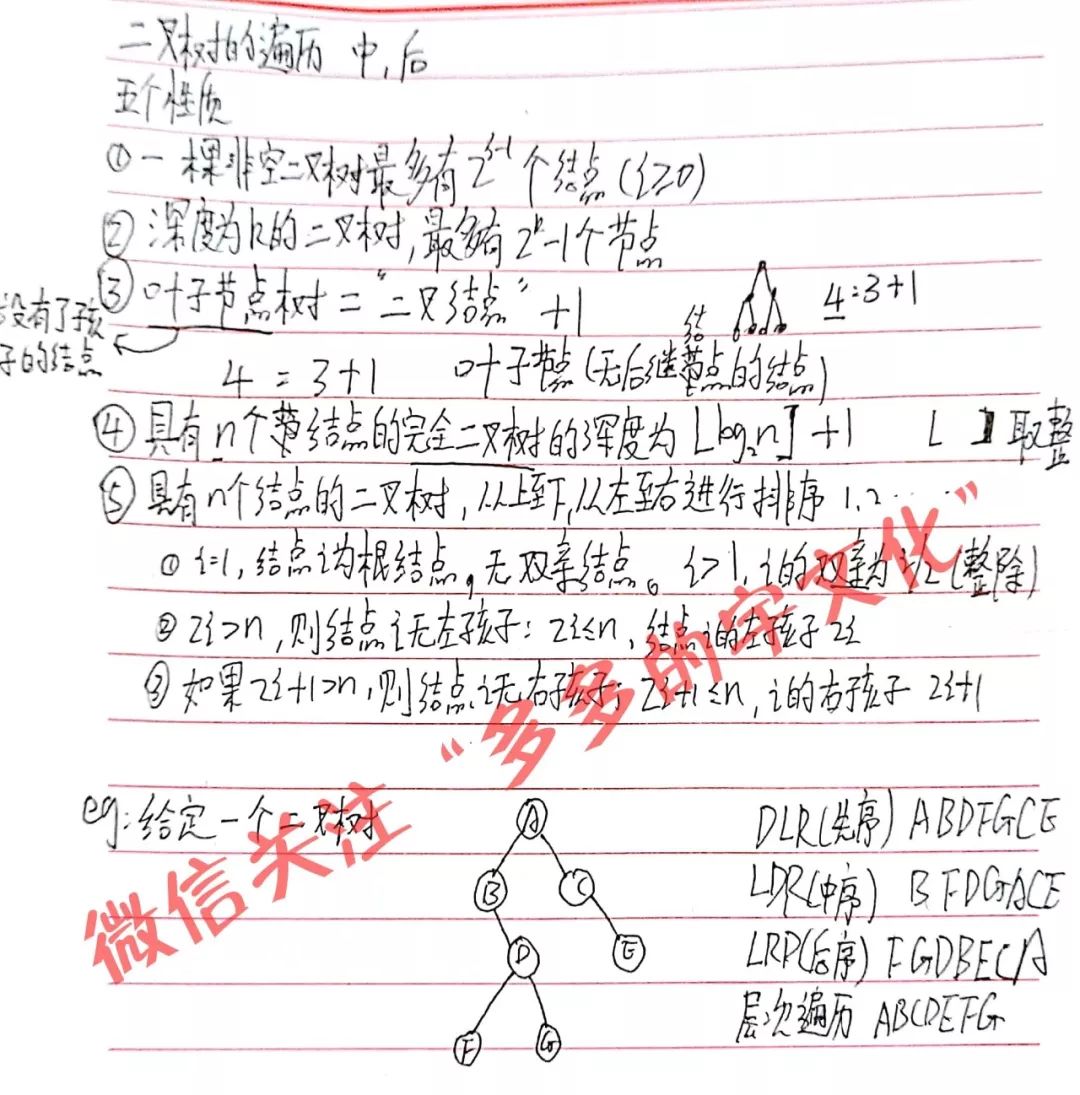 二叉树的遍历 中,后
五个性质
① 一棵非空二叉树最多有2^(i-1)个结点(i≥0)
② 深度为k的二叉树,最多有2^k-1个节点
③ 叶子节点树="二叉结点"+1 4:3+1
没有了孩子的结点
结
4 = 3+1 叶子节点(无后继节点的结点)
④ 具有n个结点的完全二叉树的深度为⌊log₂n⌋+1 ⌊ ⌋取整
⑤ 具有n个结点的二叉树,从上到下,从左至右进行排序 1,2……
① i=1,结点i为根结点,无双亲结点。i>1,i的双亲为i/2(整除)
② 2i>n,则结点i无左孩子;2i≤n,结点i的左孩子2i
③ 如果2i+1>n,则结点i无右孩子;2i+1≤n,i的右孩子 2i+1
eg:给定一个二叉树
A
B C
D E
F G
DLR(先序) ABDFGCE
LDR(中序) BFDGACE
LRD(后序) FGDBECA
层次遍历 ABCDEFG
微信关注“多多的字文化”